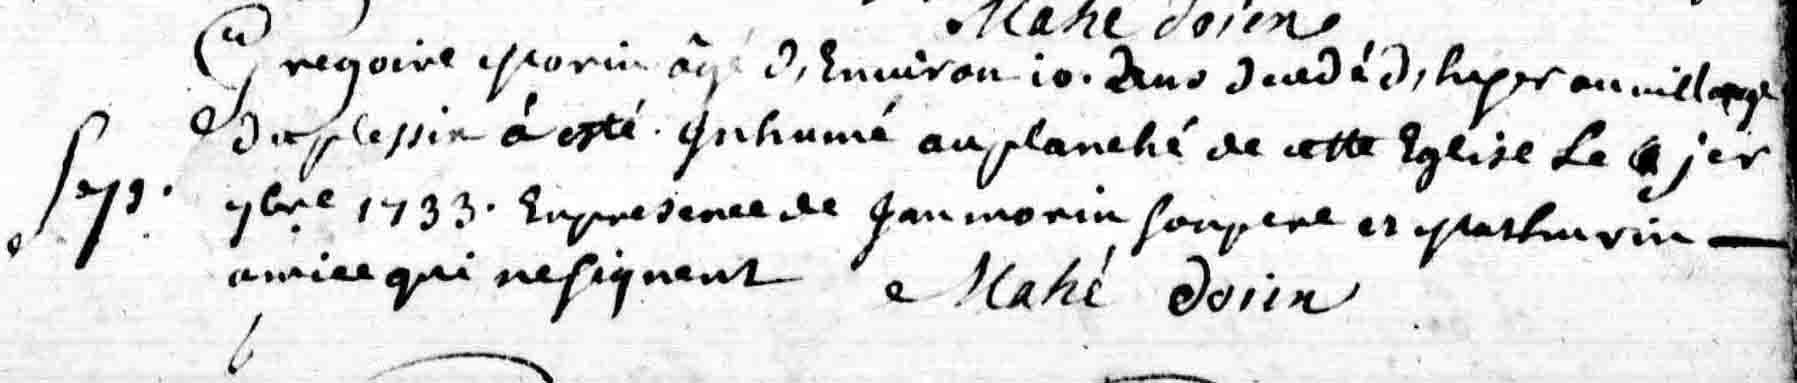 Mahé doien
Gregoire morin âgé d'Environ 10. ans decedé d'hyer au village
duplessix à esté Inhumé auplanché de cette Eglise Le jer
7bre 1733. Enpresence de Jan morin sonpere et Mathurin
Sep.
amice qui nesignent Mahé doien